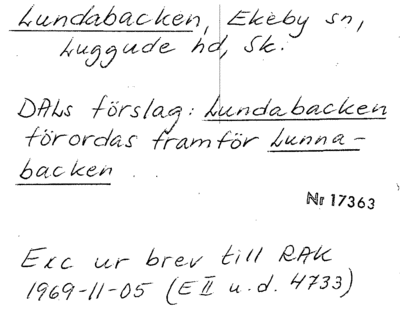 Lundabacken, Ekeby sn,
Luggude hd, Sk.
DALs förslag: Lundabacken
förordas framför Lunna-
backen
Nr 17363
Exc ur brev till RAK
1969-11-05 (E II u.d. 4733)